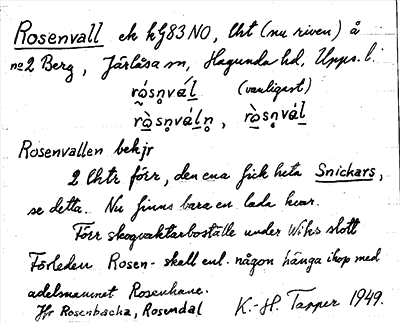 Rosenvall ek kG83NO, lht (nu riven) å
no 2 Berg, Järlåsa sn, Hagunda hd, Upps. l.
rósn̥vál (vanligast)
rò̱sn̥váln̥, rò̱sn̥vál
Rosenvallen bekjr
2 lhtr förr, den ena fick heta Snickars,
se detta. Nu finns bara en lada kvar.
Förr skogvaktarboställe under Wiks slott
Förleden Rosen- skall enl. någon hänga ihop med
adelsnamnet Rosenhane.
Jfr Rosenbacka, Rosendal K.-H. Tapper 1949.